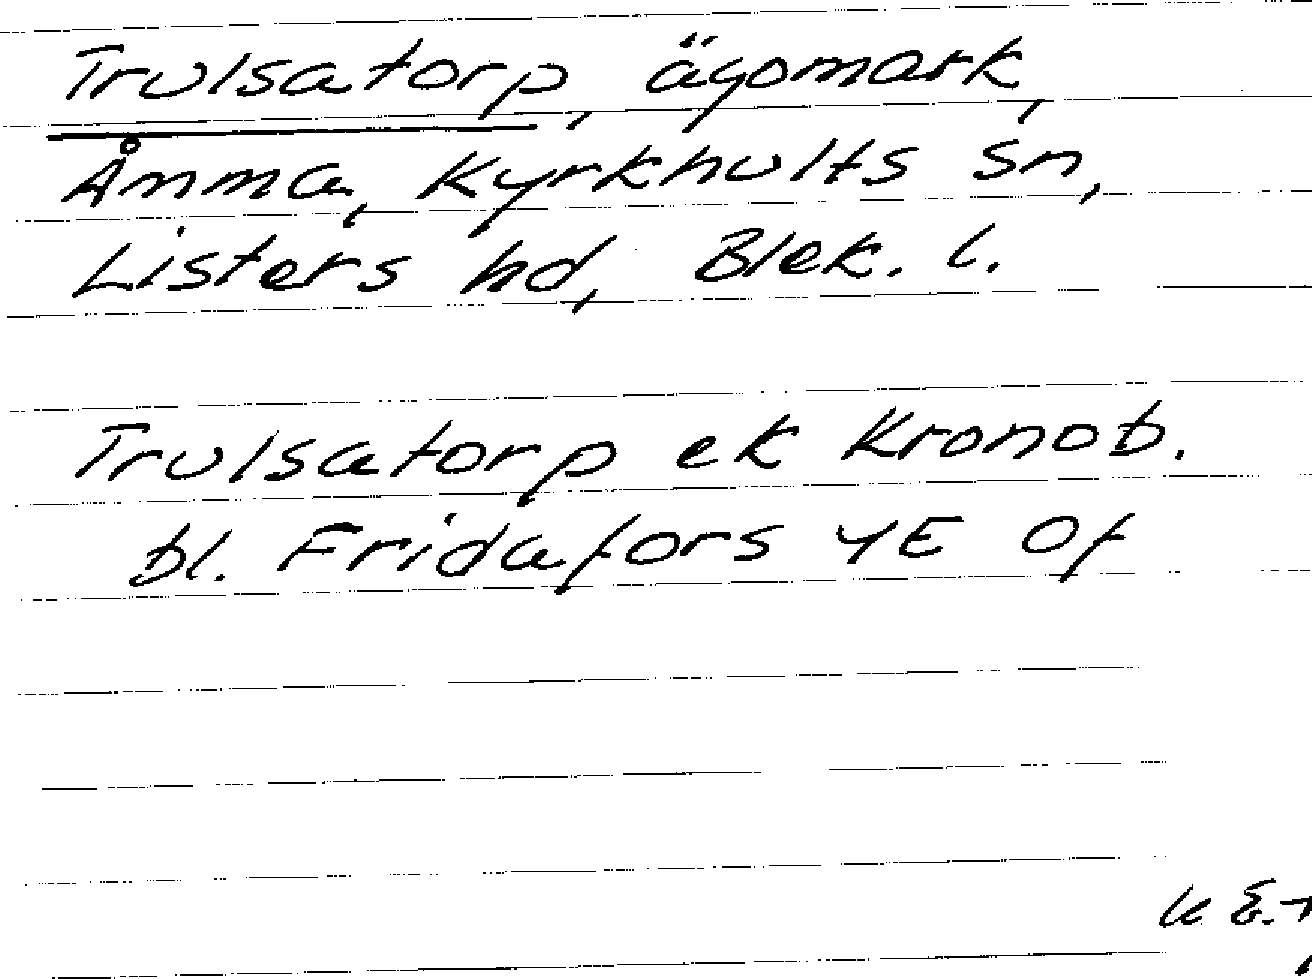 Trulsatorp, ägomark,
Åmma, Kyrkhults sn,
Listers hd, Blek. l.
Trulsatorp ek Kronob.
bl. Fridafors 4E Of